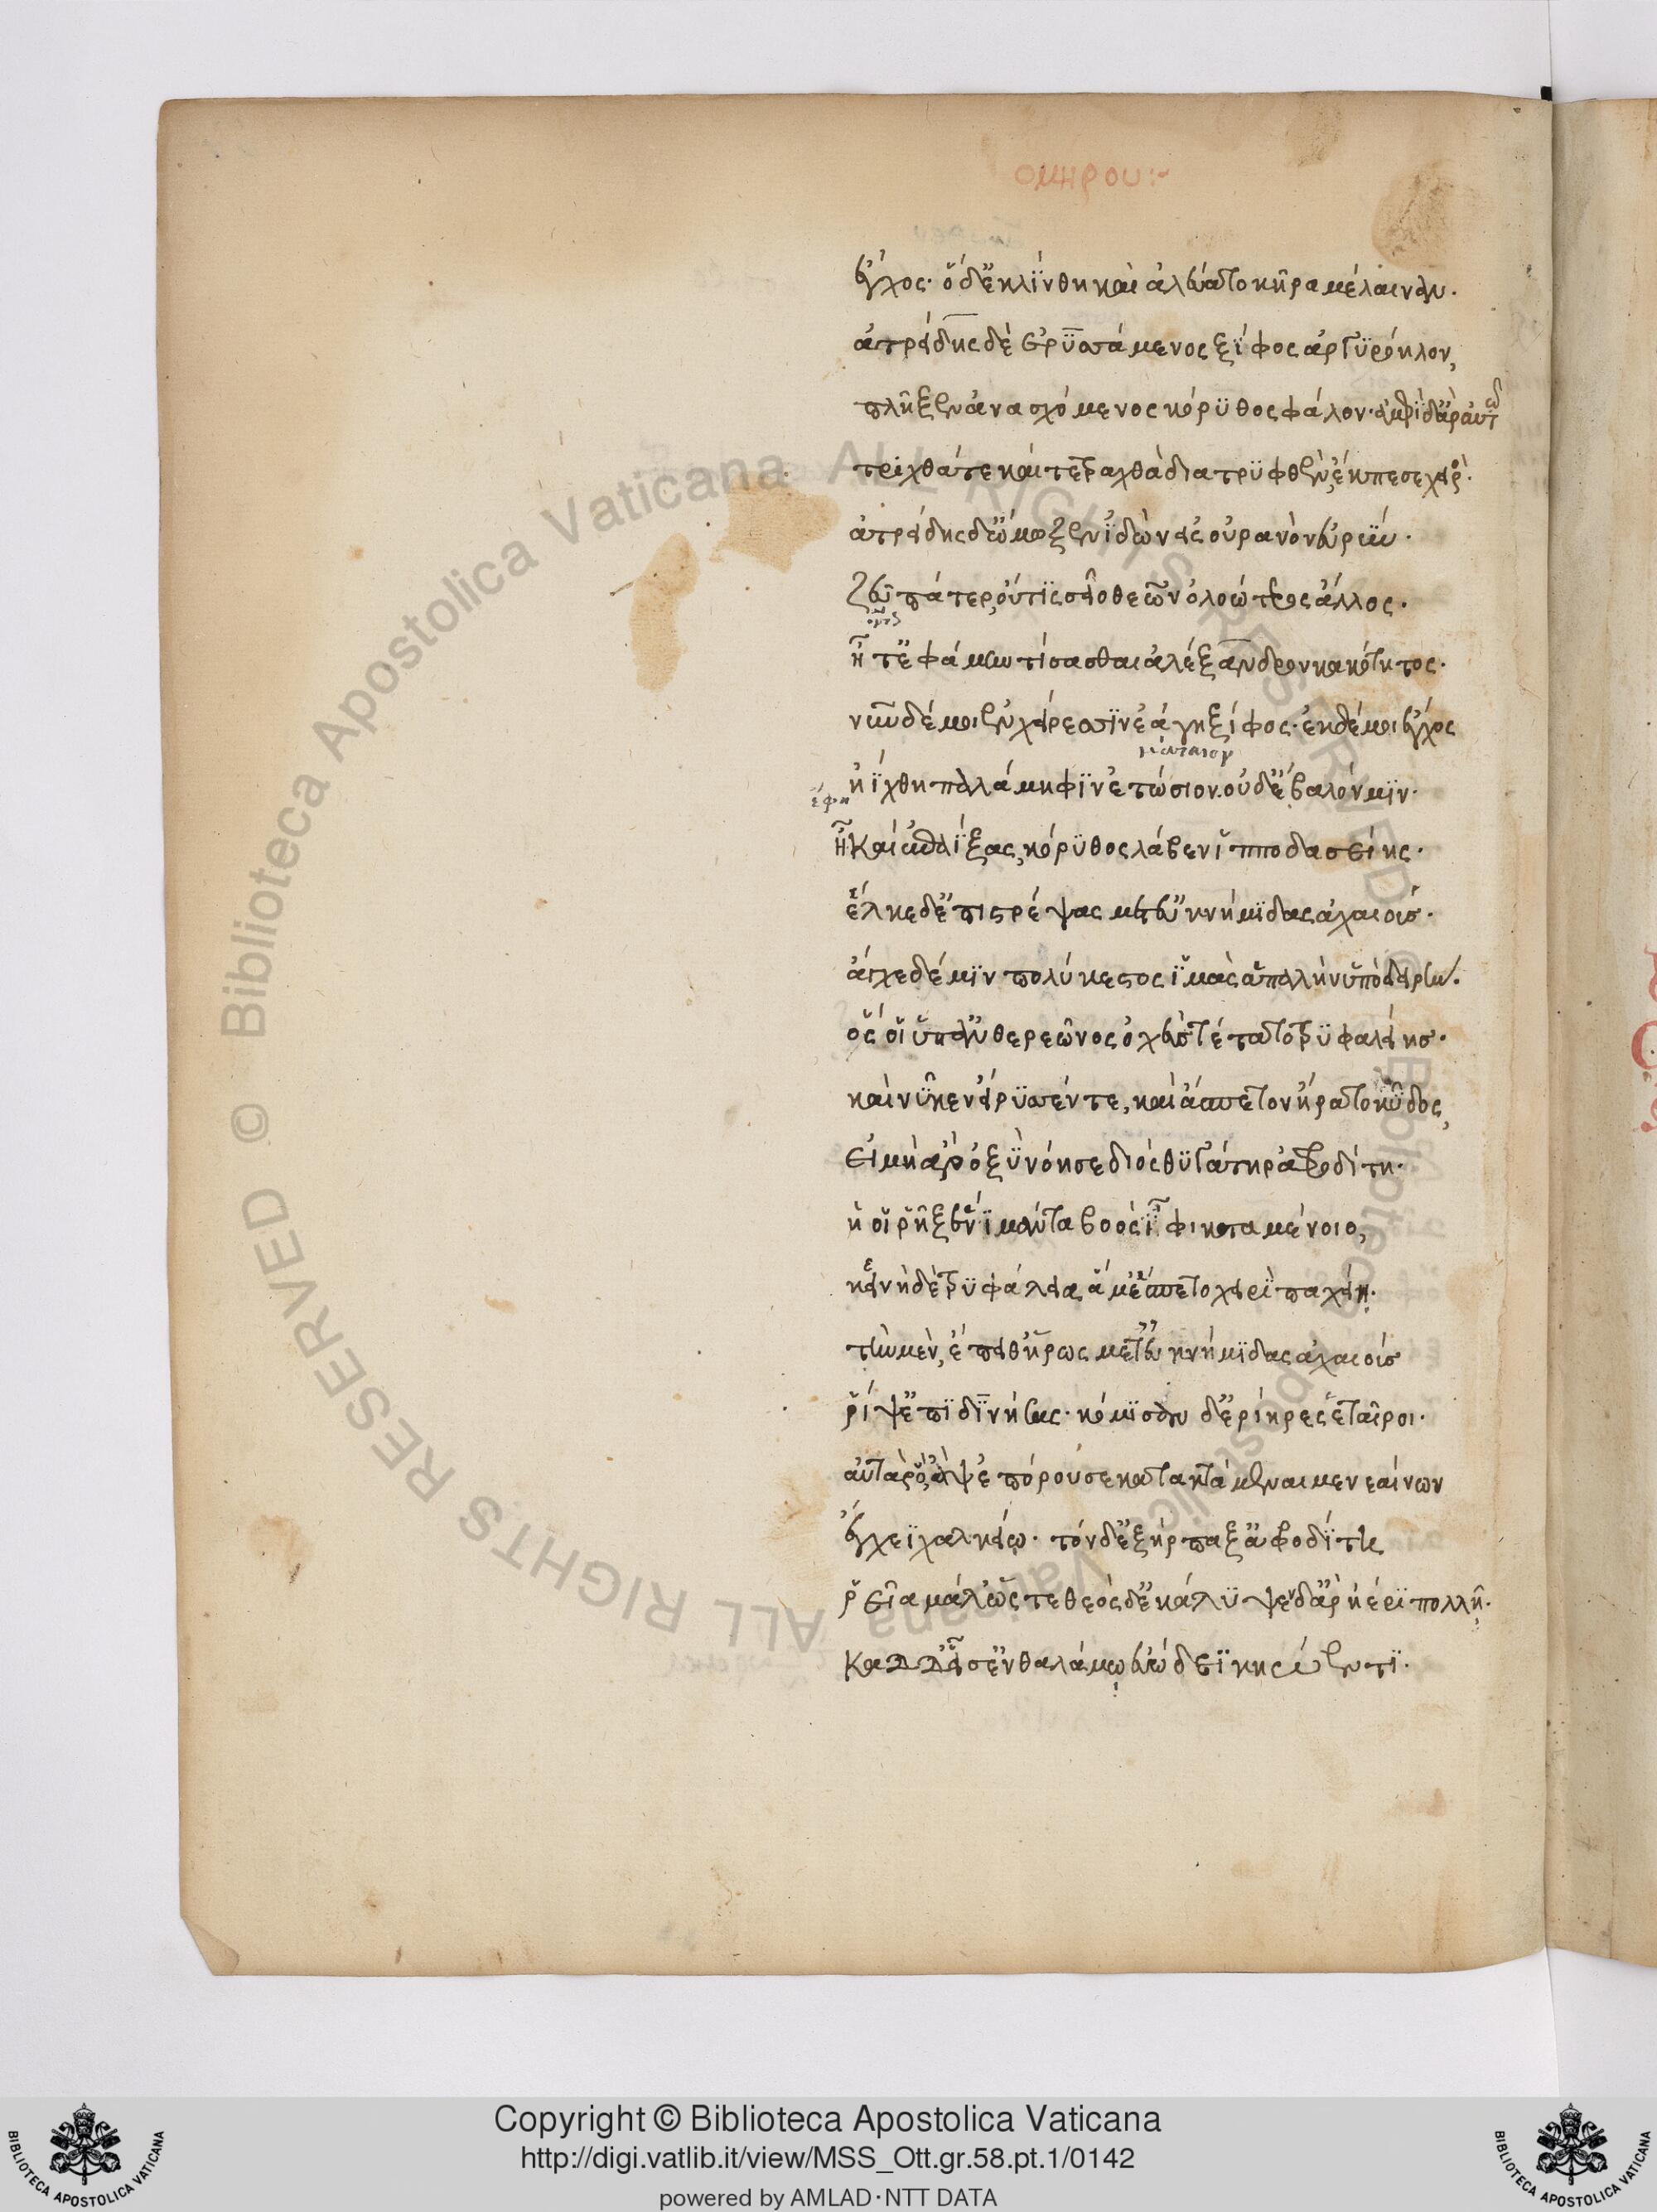 ομηρου:~
ἔγχος· ὁ δ' ἐκλίνθη καὶ ἀλεύατο κῆρα μέλαιναν·
ἀτρείδης δὲ ἐρυσσάμενος ξίφος ἀργυρόηλον,
πλῆξεν ἀνασχόμενος κόρυθος φάλον· ἀμφὶ δ' ἄρ αὐτῶ
τριχθά τε καὶ τετραχθὰ διατρυφθὲν, ἔκπεσε χειρός·
ἀτρείδης δ' ὤμωξεν ἰδὼν εἰς οὐρανὸν εὐρύν·
ζεῦ πάτερ, οὔτις σεῖο θεῶν ὀλοώτερος ἄλλος·
ὄντως
ἦ τ' ἐφάμην τίσασθαι ἀλέξανδρον κακότητος·
νῦν δέ μοι ἐν χείρεσσιν ἐάγη ξίφος· ἐκ δέ μοι ἔγχος
μάταιον
ἠίχθη παλάμηφιν ἐτώσιον. οὐδ' ἔβαλόν μιν·
ἔφη
ἦ καὶ ἐπαΐξας, κόρυθος λάβεν ἱπποδασείης·
ἕλκε δ' ἐπιστρέψας μετ' ἐυκνήμιδας ἀχαιούς·
ἄγχε δέ μιν πολύκεστος ἱμὰς ἁπαλὴν ὑπὸ δειρήν.
ὅς οἱ ὑπ' ἀνθερεῶνος ὀχεὺς τέτατο τρυφαλείης·
καί νύ κεν εἴρυσσέν τε, καὶ ἄσπετον ἤρατο κῦδος,
εἰ μὴ ἄρ' ὀξὺ νόησε διὸς θυγάτηρ ἀφροδίτη·
ἥ οἱ ῥῆξεν ἱμάντα βοὸς ἶφι κταμένοιο,
κεινὴ δὲ τρυφάλεια ἅμ' ἕσπετο χειρὶ παχείῃ·
τὴν μὲν, ἔπειθ' ἥρως μετ' ἐυκνήμιδας ἀχαιούς
ῥίψ' ἐπιδινήσας· κόμισαν δ' ἐρίηρες ἑταῖροι·
αὐτὰρ ὁ, ἂψ ἐπόρουσε κατακτάμεναι μενεαίνων
ἔγχεϊ χαλκείῳ· τὸν δ' ἐξήρπαξ' ἀφροδίτη
ῥεῖα μάλ' ὥς τε θεὸς δ' ἐκάλυψεν δ' ἄρ' ἠέρι πολλῇ·
καδ δ' εἷσ' ἐν θαλάμῳ εὐώδεϊ κηώεντι·
Copyright © Biblioteca Apostolica Vaticana
http://digi.vatlib.it/view/MSS_Ott.gr.58.pt.1/0142
powered by AMLAD·NTT DATA
BIBLIOTECA APOSTOLICA VATICANA
BIBLIOTECA APOSTOLICA VATICANA
© Biblioteca Apostolica Vaticana ALL RIGHTS RESERVED
© Biblioteca Apostolica Vaticana ALL RIGHTS RESERVED